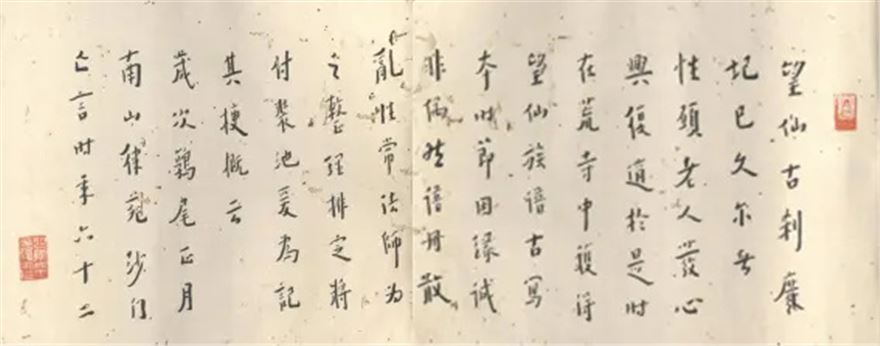 望仙古刹廢
圮已久尔者
性願老人發心
興復適於是时
在荒寺中獲得
望仙族譜古寫
本时節因緣誠
非偶然譜冊散
亂性常法師为
之整理排定將
付裝池爰为記
其梗概云
歲次鶉尾正月
南山律苑沙门
亡言时年六十二